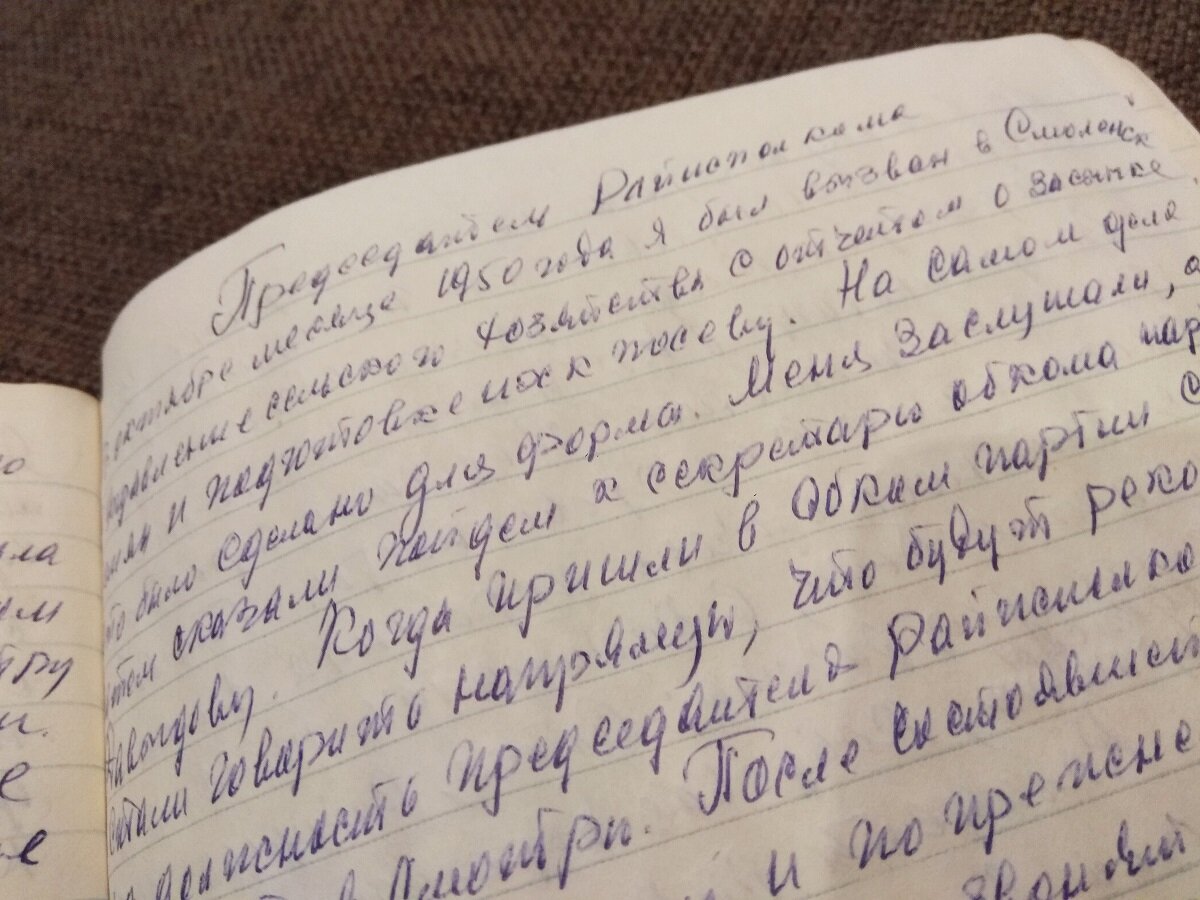 Председателем Райисполкома
октябре месяце 1950 года я был вызван в Смоленск
управление сельского хозяйства с отчетом о засыпке
и подготовке их к посеву. На самом деле
это было сделано для формы. Меня заслушали, а
потом сказали пойдем к секретарю обкома пар
Когда пришли в обком партии с
стали говорить напрямую, что будут реко
на должность председателя райисполко
После состоявшегося
и по прежне
звонят
ла
ым
тру
и.
е